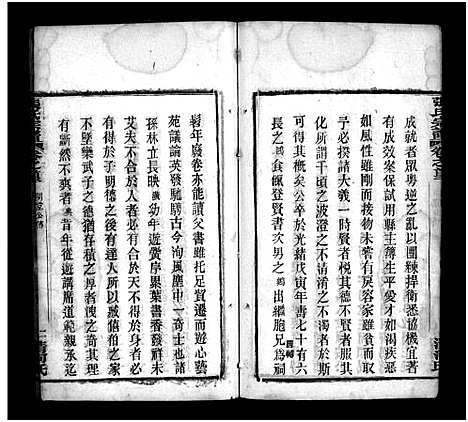 就成者眾粵逆之亂以團練捍衛悉協機宜著
有成效案保試用縣主簿生平愛才如渴見義
如風性雖剛而接物未嘗有戾容家雖貧而羽
必揆諸大義一時賢者悅其德不賢者服其
化所謂千頃之波澄之不清淆之不濁者於斯
得其概矣公卒於光緒戊寅年壽七十有六
長之 食餼登賢書次男之 出繼胞兄為嗣
髫年廢卷亦能讀父書雖托足貿遷而遊心藝
苑議論英發馳騁古今洵風塵中一奇士也
孫林立長映 幼年遊黌序累葉書香發祥未
艾夫不合於人者必有合於天不得於身者必
有得於子明德之後有達人所以臧僖伯之言
不墜欒武子之德猶存積之厚者洩之奇其理
有斷然不爽者 昔年從遊講席道範親承
清河氏